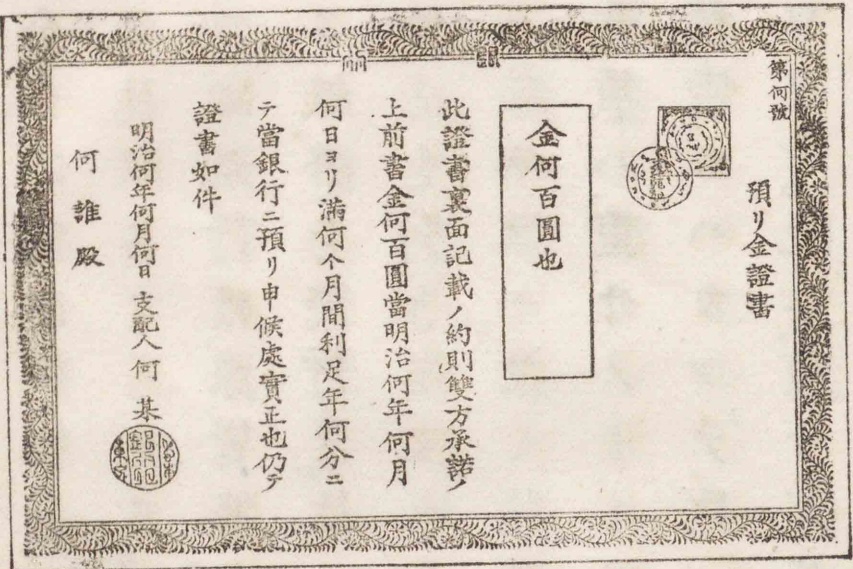 第何號
預リ金證書
金何百圓也
此證書裏面記載ノ約則雙方承諾ノ
上前書金何百圓當明治何年何月
何日ヨリ滿何个月間利足年何分ニ
テ當銀行ニ預リ申候處實正也仍テ
證書如件
明治何年何月何日 支配人 何 某
何誰殿